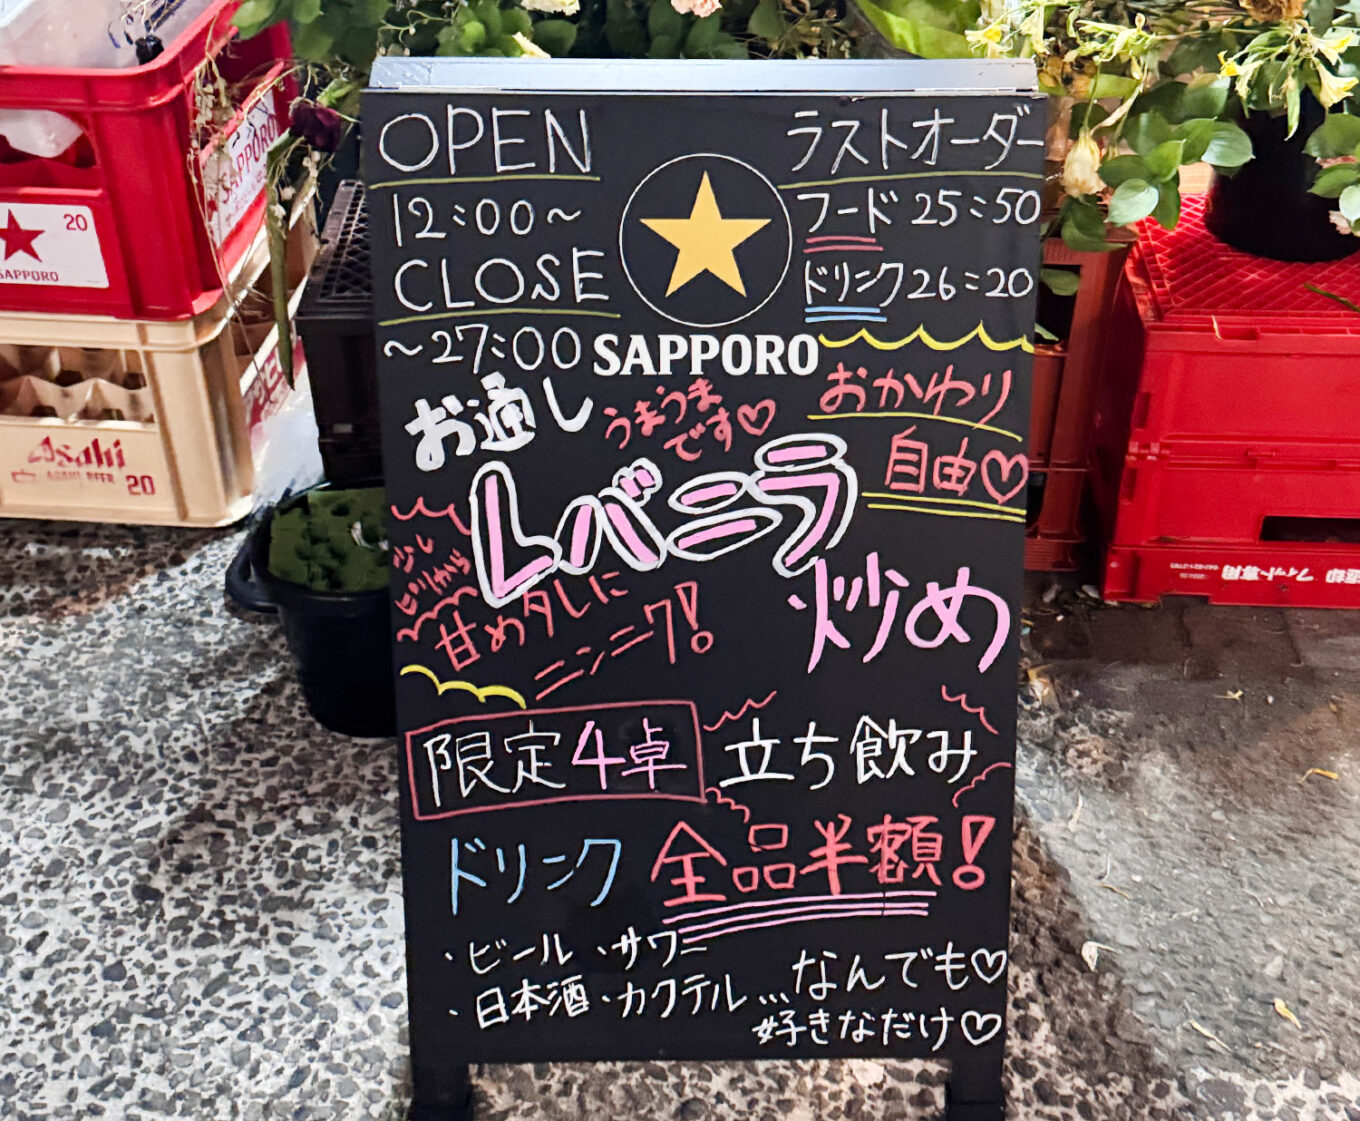 OPEN
12:00~
CLOSE
~27:00
ラストオーダー
フード 25:50
ドリンク 26:20
SAPPORO
お通し
うまうま
です♡
おかわり
自由♡
レバニラ
炒め
少し
ピリから
甘めタレに
ニンニク!
限定4卓
立ち飲み
ドリンク 全品半額!
・ビール ・サワー
・日本酒・カクテル...なんでも♡
好きなだけ♡
SAPPORO
20
SAPPORO
Asahi
ASAHI BEER 20